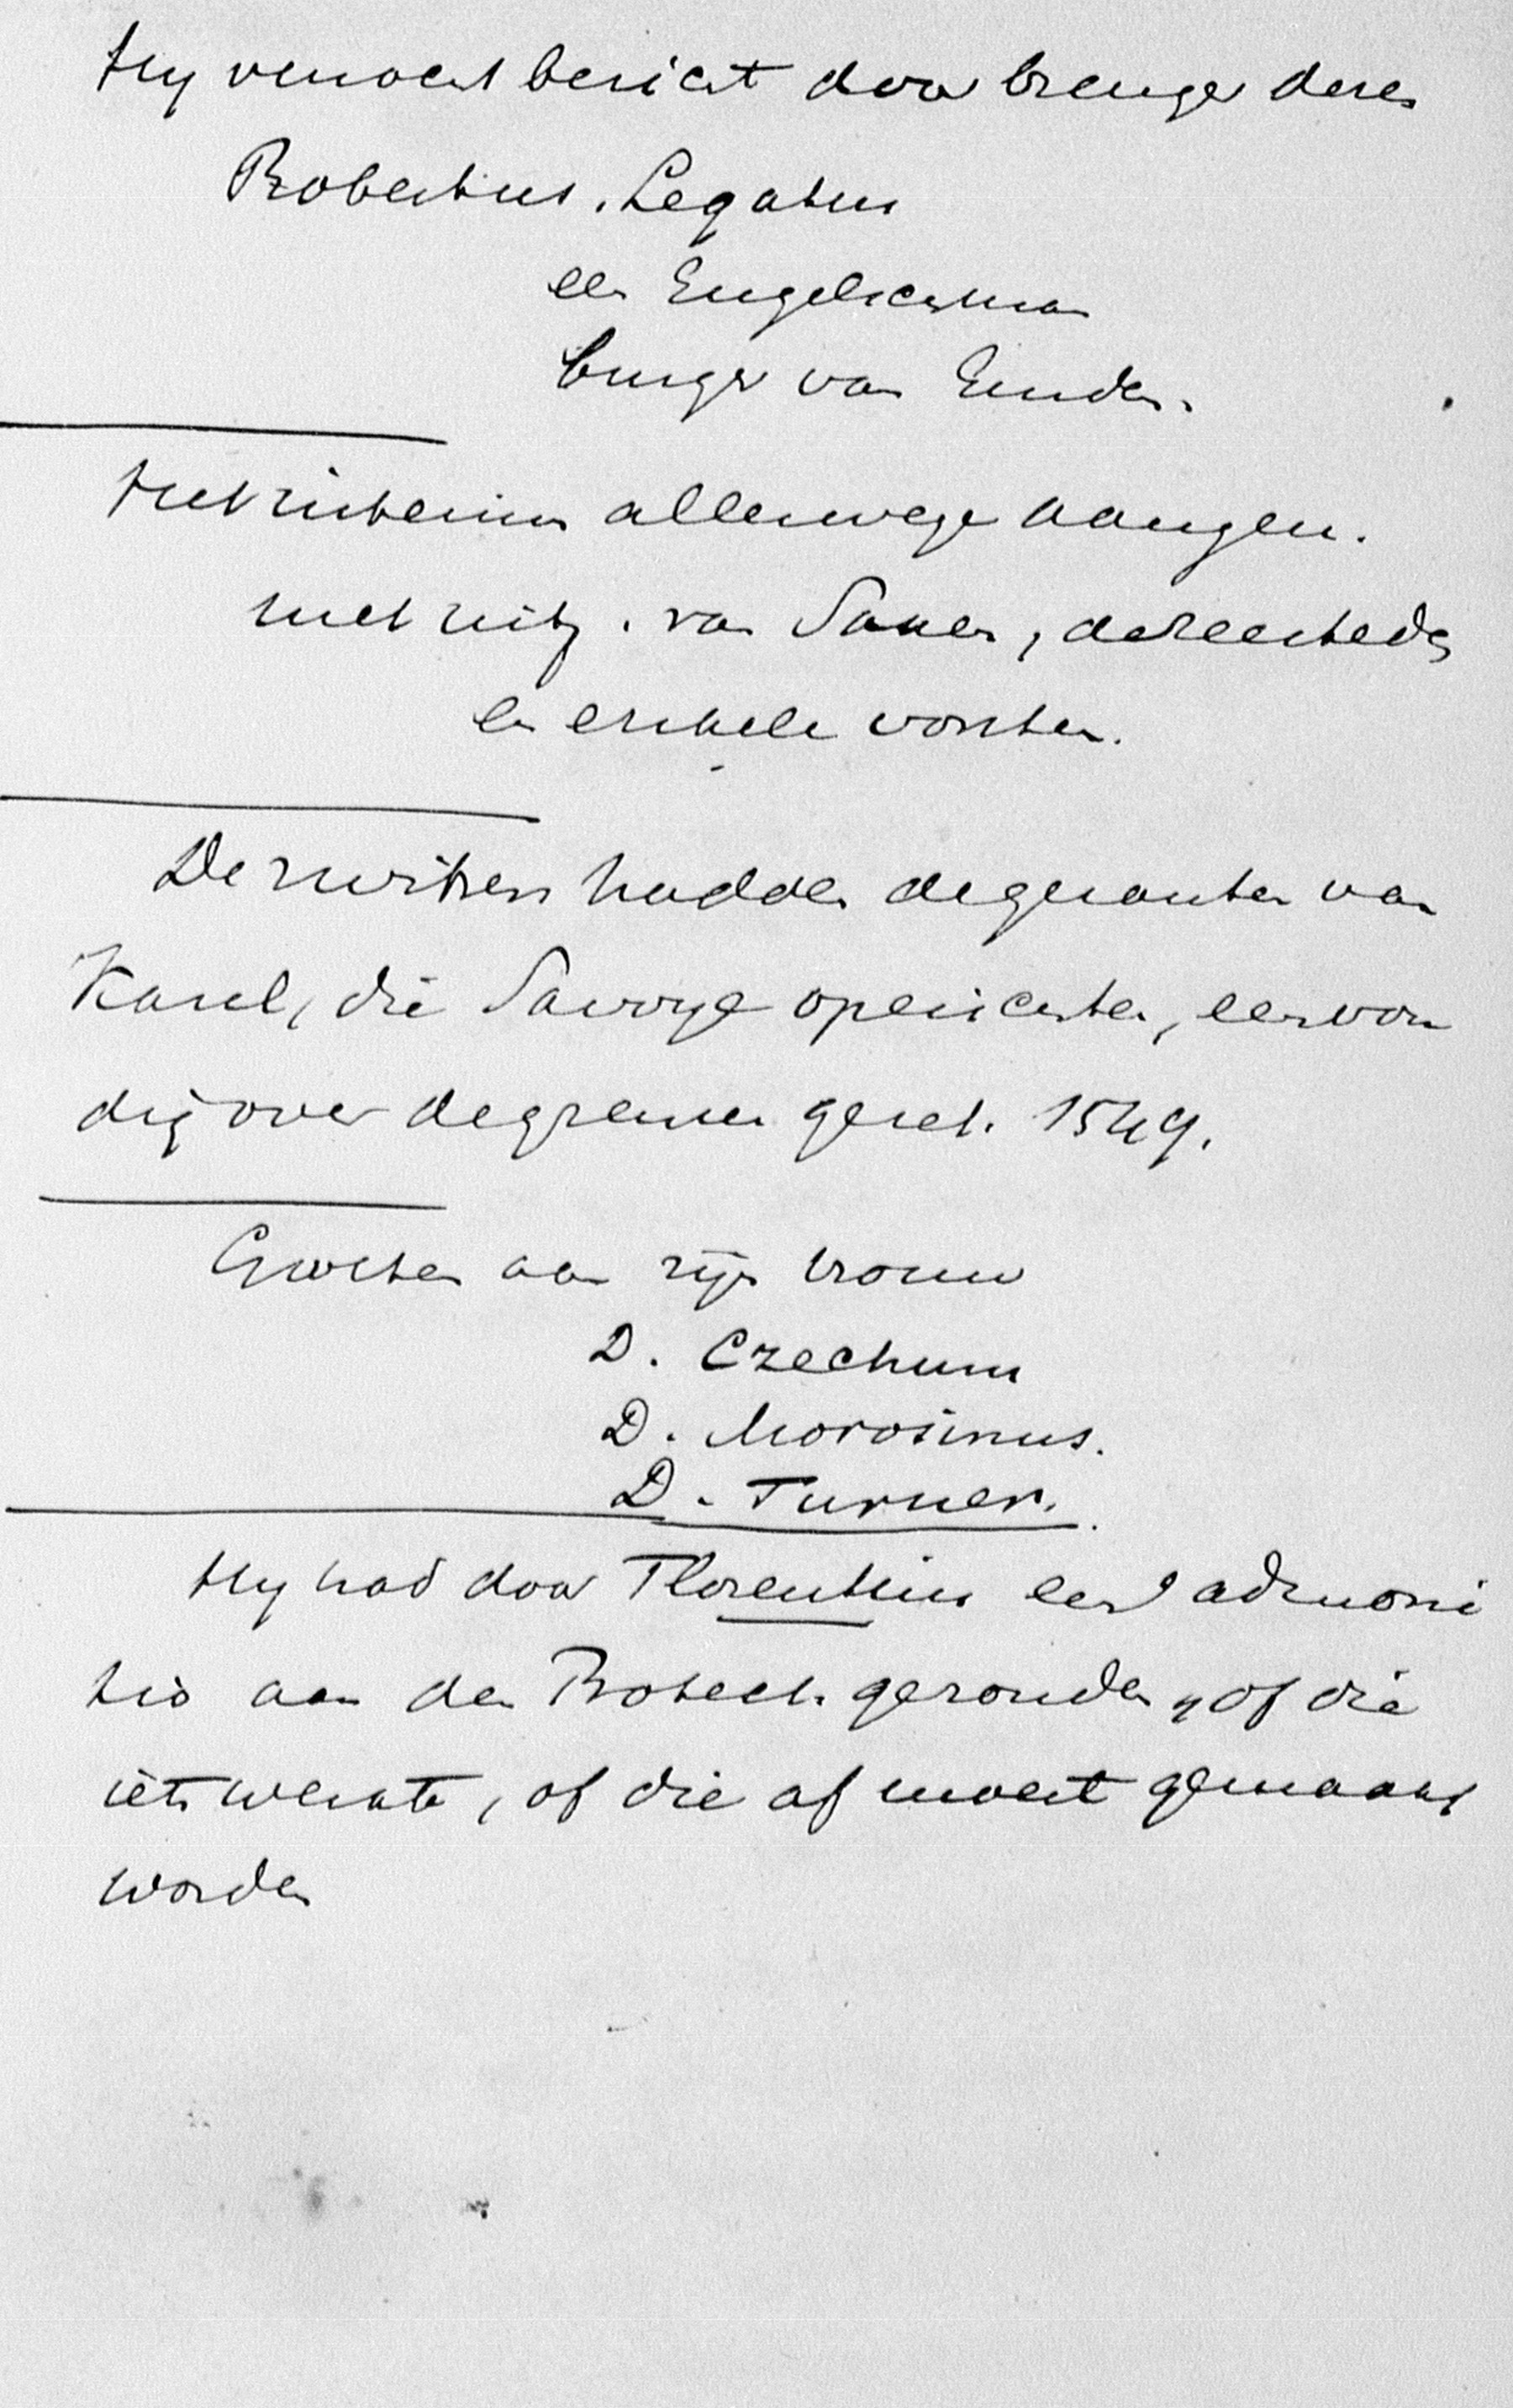 Hij verwacht bericht door brenger dezes
Robertus. Legatus
een Engelschman
burger van Emden.
Het interim allerwege aangen.
met uitz. van Saxen, de zeesteden
en enkele vorsten.
De Zwitsers hadden de gezanten van
Karel, die Savoye opeischten, eenvou
dig over de grenzen gezet. 1549.
Groeten aan zijn vrouw
D. Czechum
D. Morosinus.
D. Turner.
Hij had door Florentius een admoni
tio aan den Protect. gezonden, of die
iets werkte, of die af moest gemaakt
worden